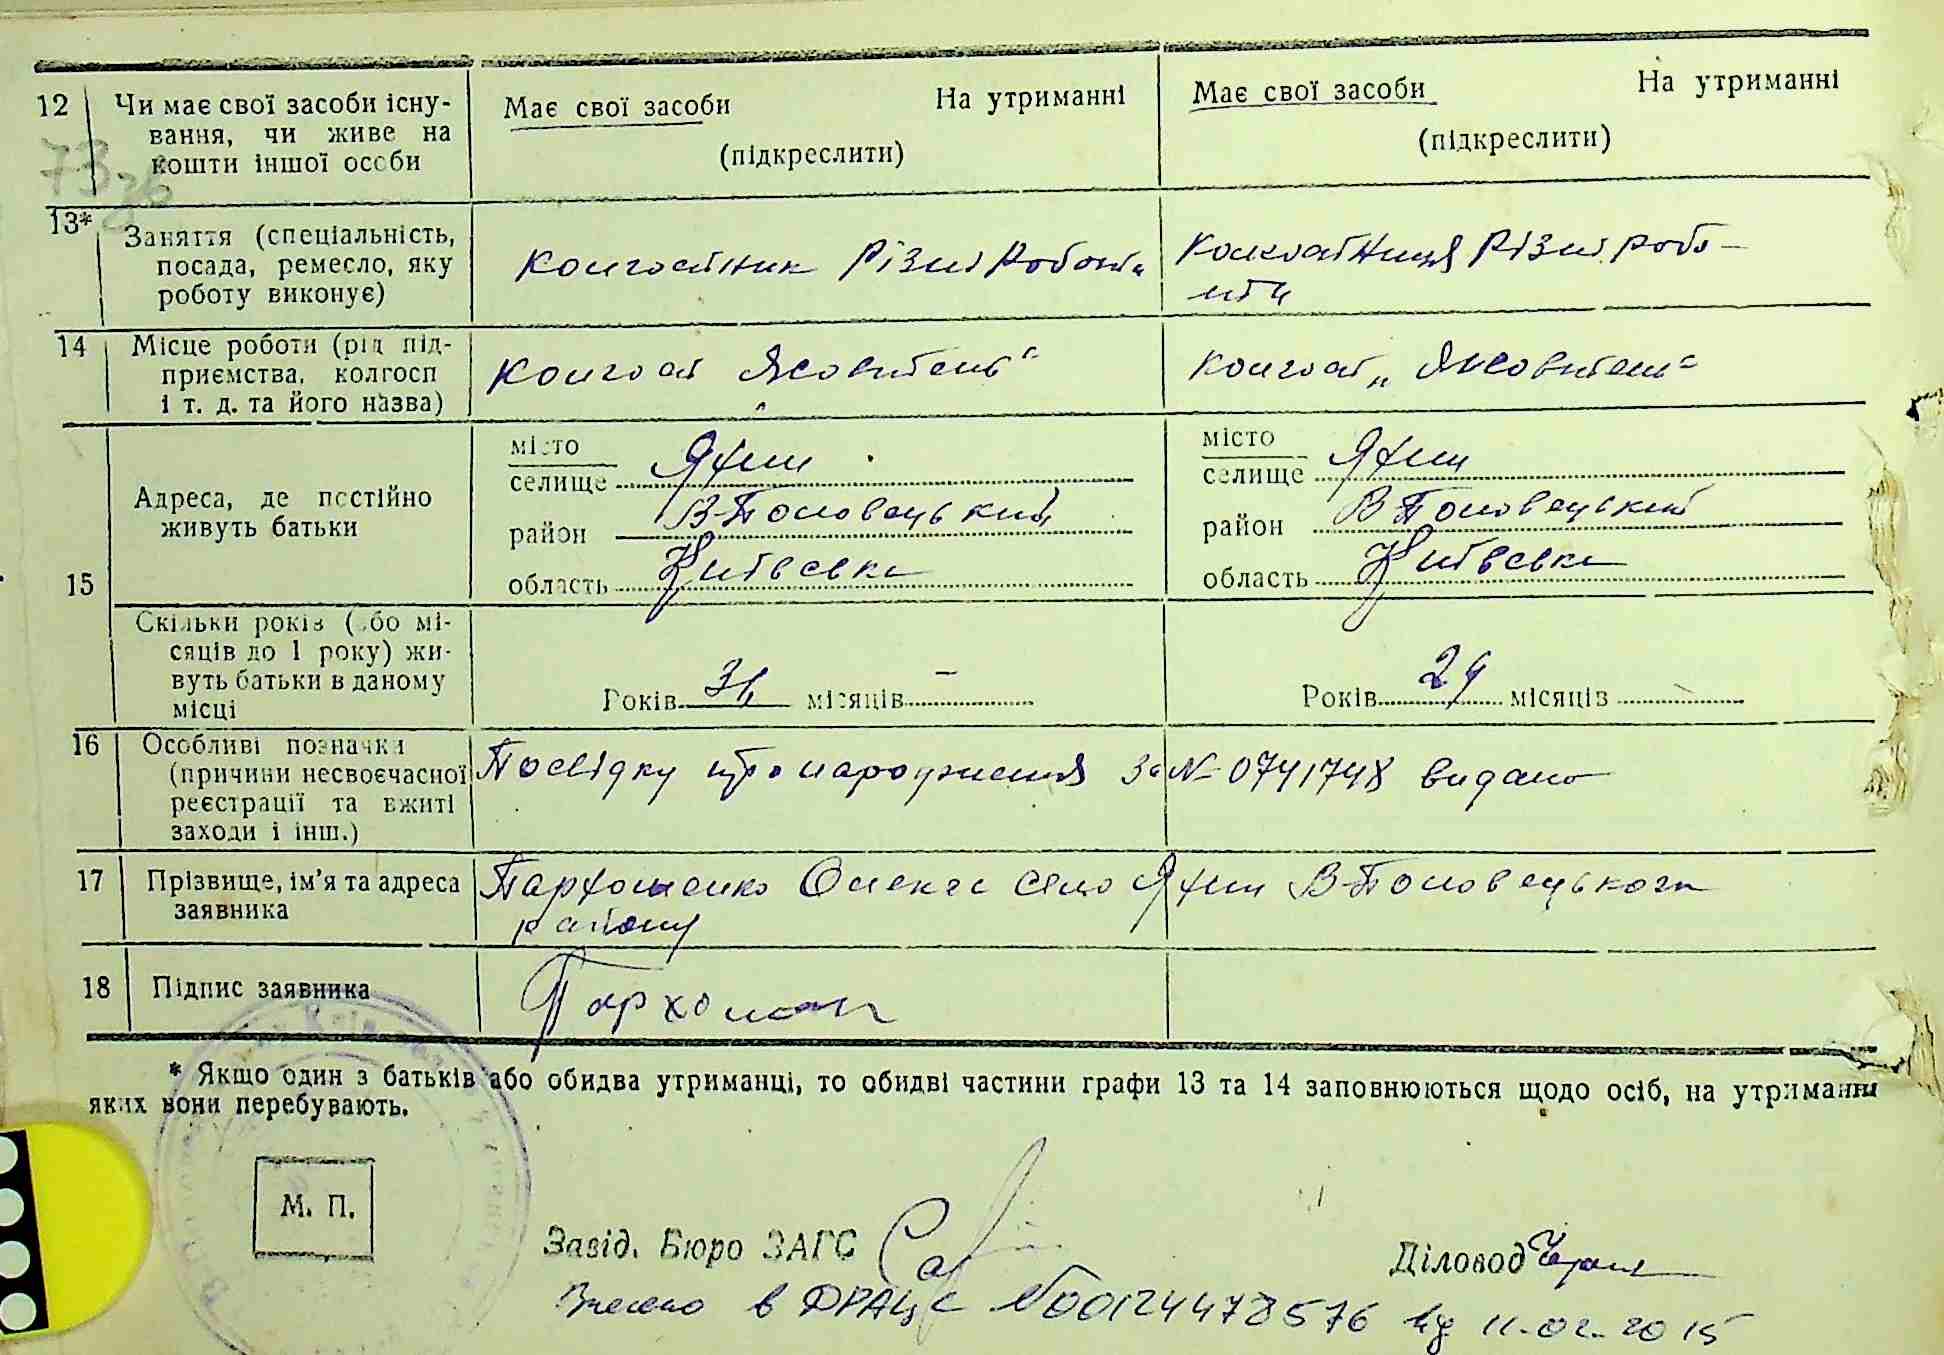 12 Чи має свої засоби існу-
вання, чи живе на
кошти іншої особи
Має свої засоби На утриманні
(підкреслити)
Має свої засоби На утриманні
(підкреслити)
13* Заняття (спеціальність,
посада, ремесло, яку
роботу виконує)
колгоспник Різні роботи
колгоспниця Різні робо-
ти
14 Місце роботи (рід під-
приємства, колгосп
і т. д. та його назва)
колгосп
колгосп
15 Адреса, де постійно
живуть батьки
місто
селище Яхни
район В-Половецький
область Київська
місто
селище Яхни
район В Половецький
область Київська
Скільки років (або мі-
сяців до 1 року) жи-
вуть батьки в даному
місці
Років місяців –
Років місяців
16 Особливі позначки
(причини несвоєчасної
реєстрації та вжиті
заходи і інш.)
Посвідку про народження за № 0741748 видано
17 Прізвище, ім'я та адреса
заявника
Пархоменко село Яхни В-Половецького
району
18 Підпис заявника
* Якщо один з батьків або обидва утриманці, то обидві частини графи 13 та 14 заповнюються щодо осіб, на утриманні
яких вони перебувають.
М. П.
Завід. Бюро ЗАГС
Діловод
Внесено в ДРАЦС №00124478576 від 11.02.2015